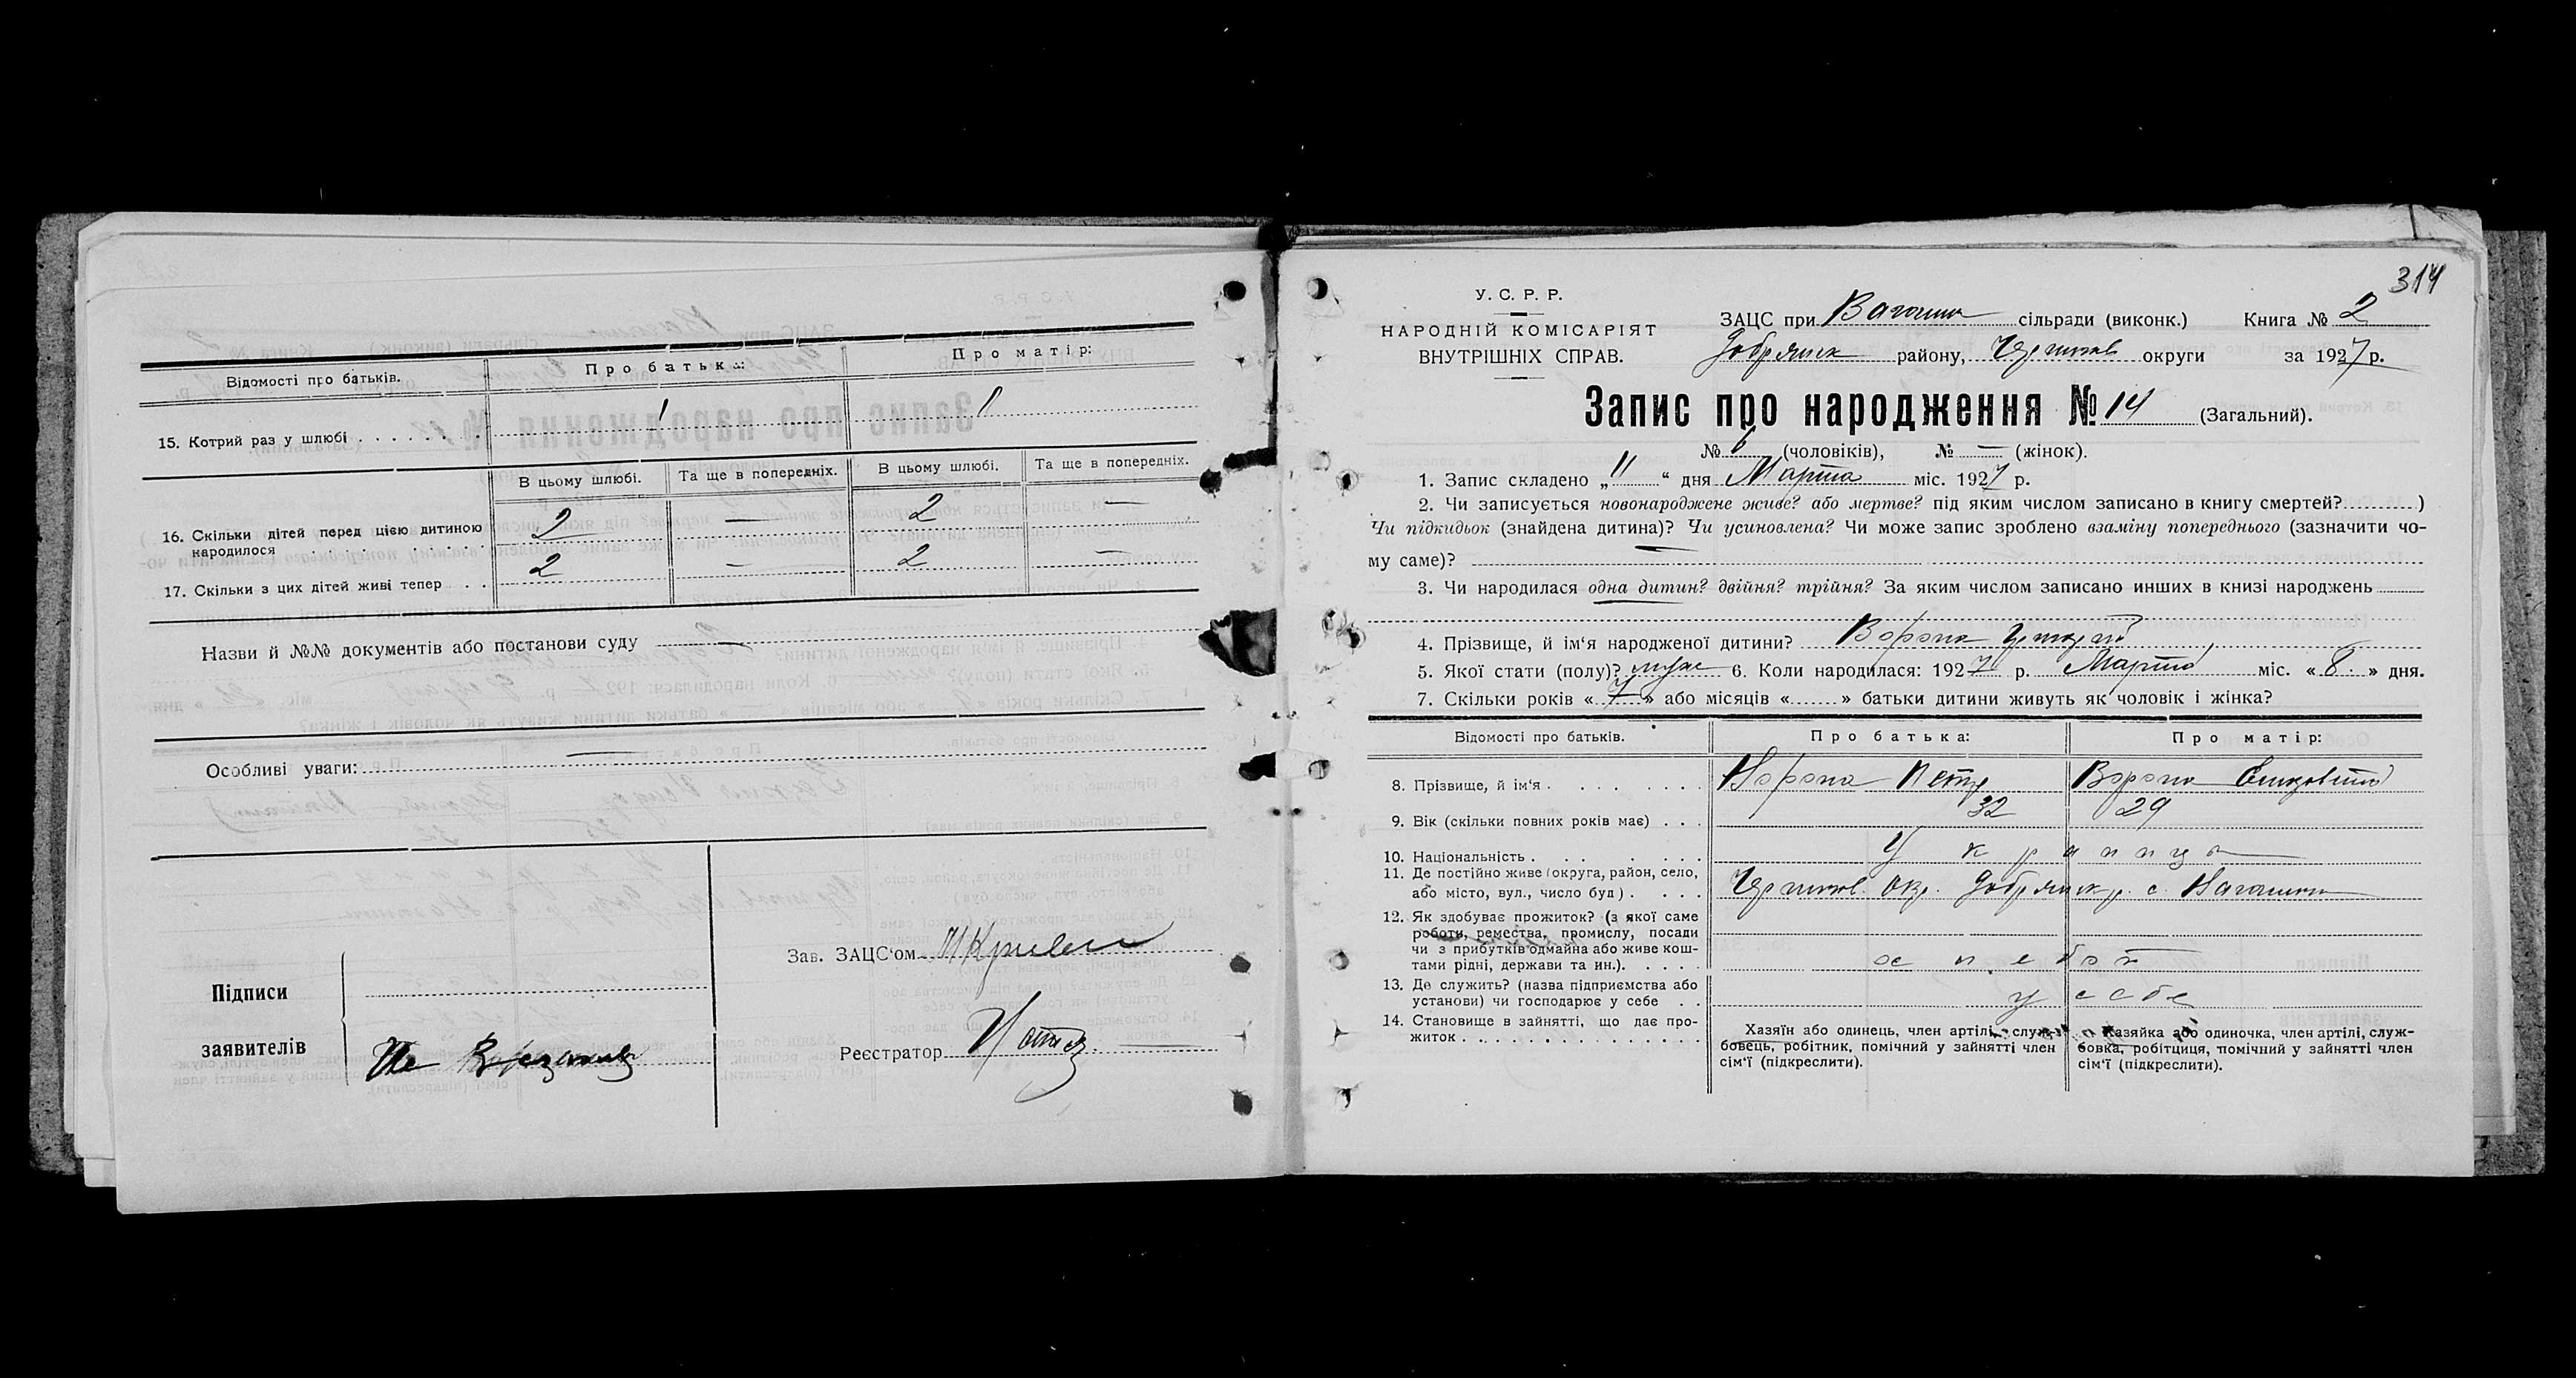 Відомості про батьків. Про батька: Про матір:
15. Котрий раз у шлюбі . . . . . . . 1 11
В цьому шлюбі. Та ще в попередніх. В цьому шлюбі. Та ще в попередніх.
16. Скільки дітей перед цією дитиною
народилося . . . . . . . . . . . 2 — 2 —
17. Скільки з цих дітей живі тепер . . 2 — 2 —
Назви й №№ документів або постанови суду —
Особливі уваги: —
Зав. ЗАЦС'ом
Підписи
заявителів
Реєстратор
314
У. С. Р. Р.
НАРОДНІЙ КОМІСАРІЯТ
ВНУТРІШНІХ СПРАВ.
ЗАЦС при сільради (виконк.) Книга № 2
Добрянск району, Чернигов округи за 1927 р.
Запис про народження № 14 (Загальний).
№ 6 (чоловіків), № — (жінок).
1. Запис складено „11“ дня Марта міс. 1927 р.
2. Чи записується новонароджене живе? або мертве? під яким числом записано в книгу смертей? )
Чи підкидьок (знайдена дитина)? Чи усиновлена? Чи може запис зроблено взаміну попереднього (зазначити чо-
му саме)? —
3. Чи народилася одна дитин? двійня? трійня? За яким числом записано инших в книзі народжень
4. Прізвище, й ім'я народженої дитини? Ворона
5. Якої стати (полу)? муж 6. Коли народилася: 1927 р. Марта міс. «8.» дня.
7. Скільки років «7» або місяців « » батьки дитини живуть як чоловік і жінка?
Відомості про батьків. Про батька: Про матір:
8. Прізвище, й ім'я . . . . . . Ворона Петр Ворона Елизовета
9. Вік (скільки повних років має) . . . 32 29
10. Національність . . . . . . . Украинцы
11. Де постійно живе (округа, район, село,
або місто, вул., число буд) . . . . Чернигов. окр. Добрянск р. с.
12. Як здобуває прожиток? (з якої саме
роботи, ремества, промислу, посади
чи з прибутків одмайна або живе кош-
тами рідні, держави та ин.). . . . . хлебоп
13. Де служить? (назва підприємства або
установи) чи господарює у себе . . у себе
14. Становище в зайнятті, що дає про-
житок . . . . . . . . . . . . . .
Хазяїн або одинець, член артілі, служ-
бовець, робітник, помічний у зайнятті член
сім'ї (підкреслити).
Хазяйка або одиночка, член артілі, служ-
бовка, робітниця, помічний у зайнятті член
сім'ї (підкреслити).